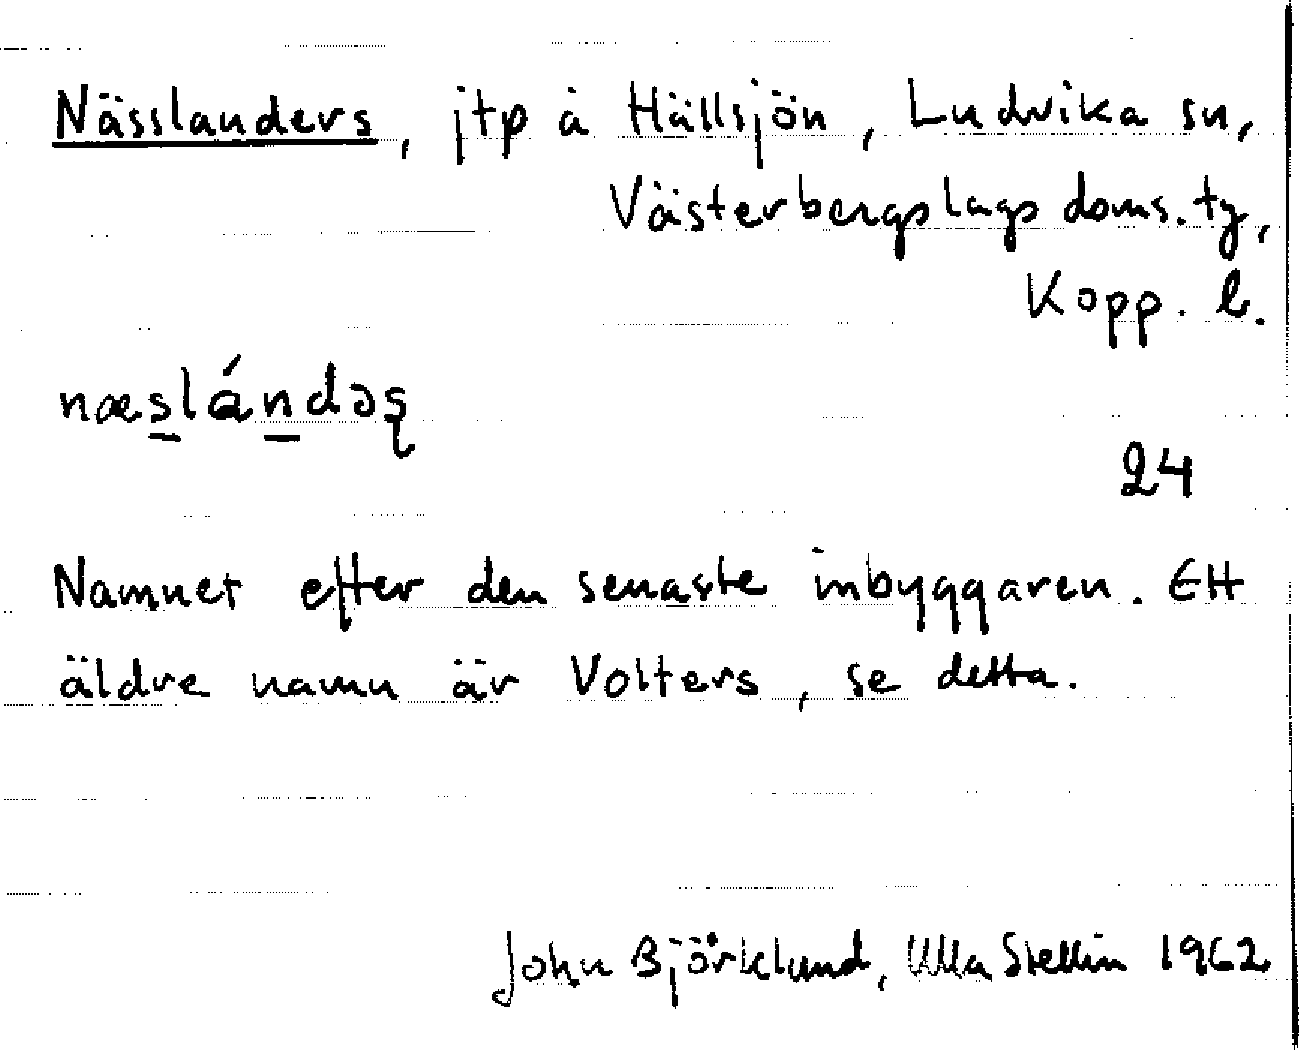 Nässlanders, jtp å Hällsjön, Ludvika sn,
Västerbergslags doms. tg,
Kopp. l.
næs̠lán̠dəʂ
24
Namnet efter den senaste inbyggaren. Ett
äldre namn är Volters, se detta.
John Björklund, Ulla Stellin 1962